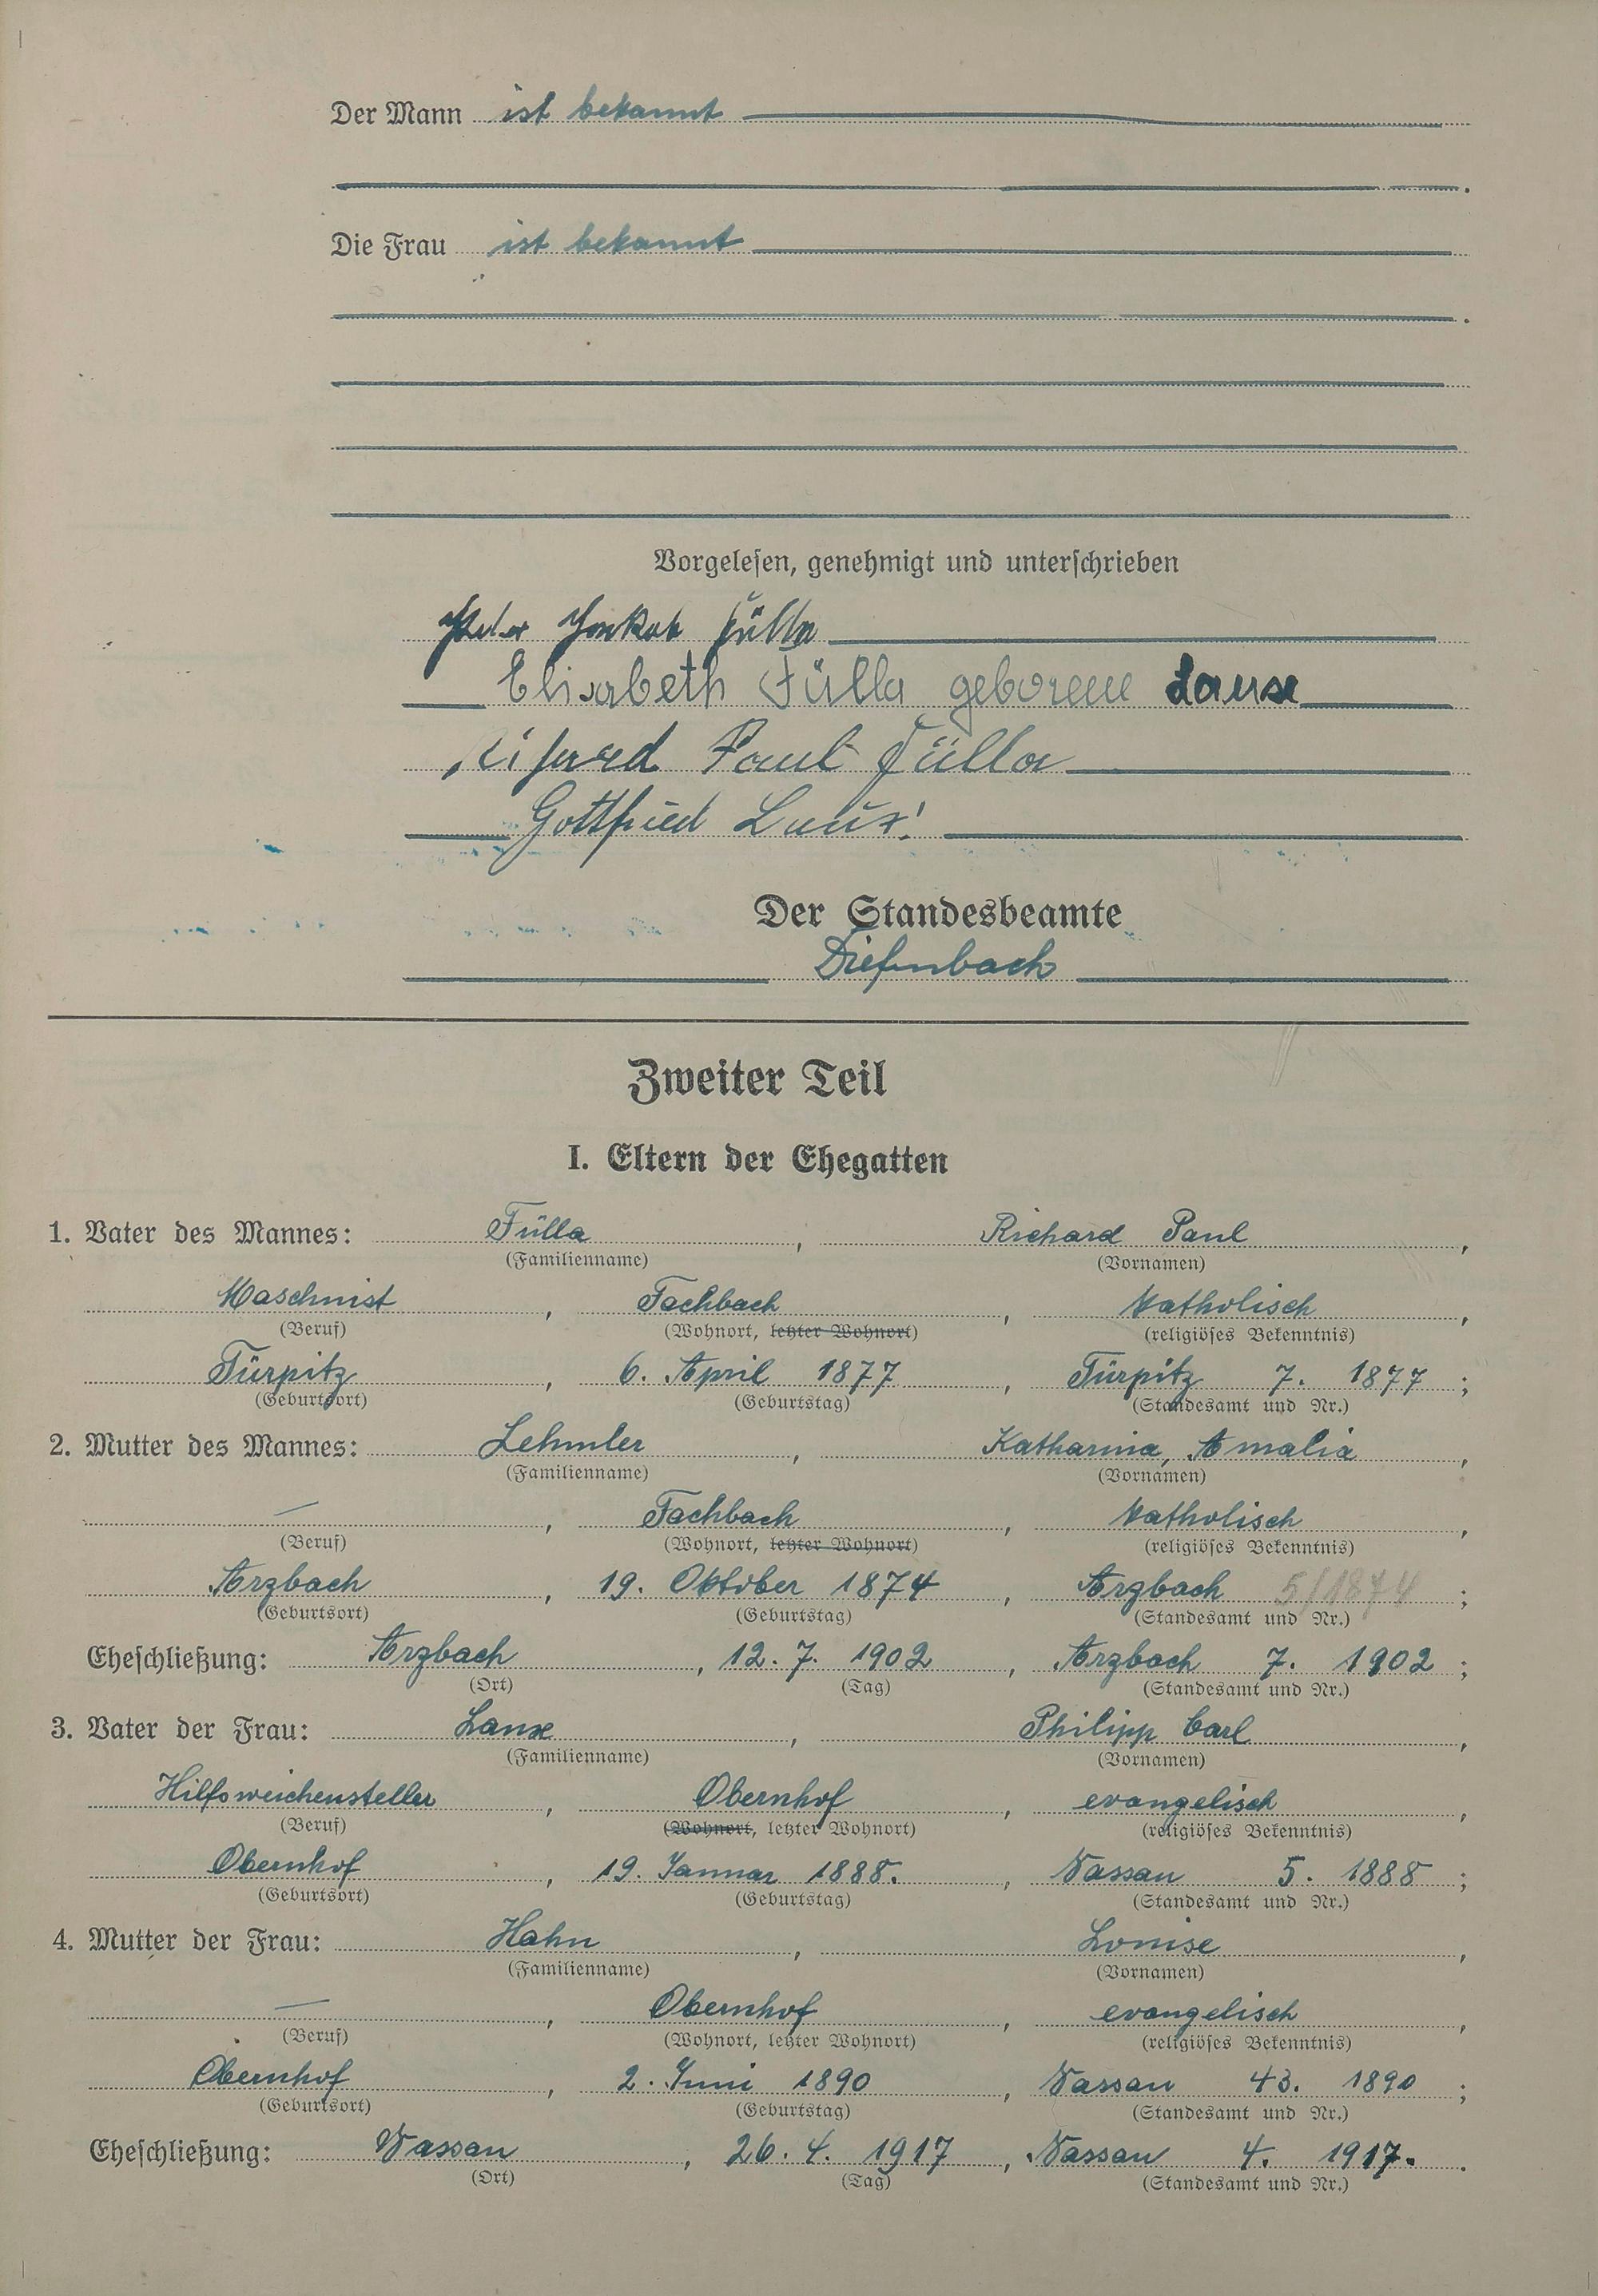 Der Mann ist bekannt
Die Frau ist bekannt
Vorgelesen, genehmigt und unterschrieben
Peter Jakob Fülla
Elisabeth Fülla geborene Lause
Paul Fülla
Gottfried
Der Standesbeamte
Diefenbach
Zweiter Teil
I. Eltern der Ehegatten
1. Vater des Mannes: Fülla, Richard Paul,
(Familienname) (Vornamen)
Maschnist, Fachbach, katholisch,
(Beruf) (Wohnort, letzter Wohnort) (religiöses Bekenntnis)
Türpitz, 6. April 1877, Türpitz 7. 1877;
(Geburtsort) (Geburtstag) (Standesamt und Nr.)
2. Mutter des Mannes: Lehmler, Katharina, Amalia,
(Familienname) (Vornamen)
—, Fachbach, katholisch,
(Beruf) (Wohnort, letzter Wohnort) (religiöses Bekenntnis)
Arzbach, 19. Oktober 1874, Arzbach 5/1874;
(Geburtsort) (Geburtstag) (Standesamt und Nr.)
Eheschließung: Arzbach, 12. 7. 1902, Arzbach 7. 1902;
(Ort) (Tag) (Standesamt und Nr.)
3. Vater der Frau: Philipp Carl,
(Familienname) (Vornamen)
Hilfsweichensteller, Obernhof, evangelisch,
(Beruf) (Wohnort, letzter Wohnort) (religiöses Bekenntnis)
Obernhof, 19. Januar 1888., Nassau 5. 1888;
(Geburtsort) (Geburtstag) (Standesamt und Nr.)
4. Mutter der Frau: Hahn, Louise,
(Familienname) (Vornamen)
—, Obernhof, evangelisch,
(Beruf) (Wohnort, letzter Wohnort) (religiöses Bekenntnis)
Obernhof, 2. Juni 1890, Nassau 43. 1890;
(Geburtsort) (Geburtstag) (Standesamt und Nr.)
Eheschließung: Nassau, 26. 4. 1917, Nassau 4. 1917.
(Ort) (Tag) (Standesamt und Nr.)